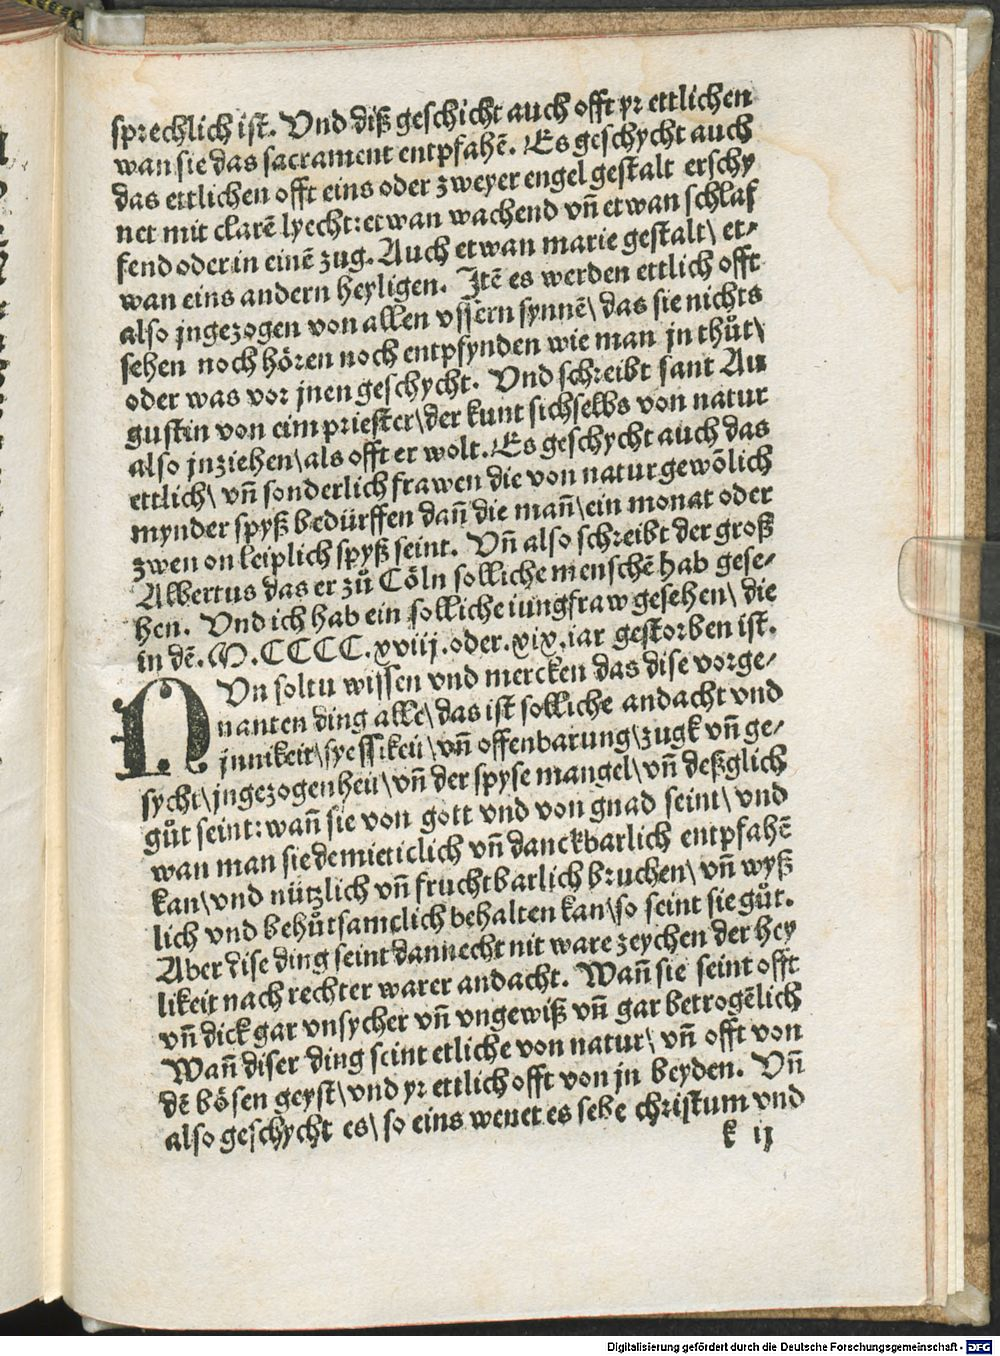 sprechlich ist. Vnd diß geschicht auch offt yr ettlichen
wan sie das sacrament entpfahē. Es geschycht auch
das ettlichen offt eins oder zweyer engel gestalt erschy
net mit clarē lyecht: etwan wachend vn̄ etwan schlaf
fend oder in einē zug. Auch etwan marie gestalt\ et⸗
wan eins andern heyligen. Jtē es werden ettlich offt
also jngezogen von allen vssern synnē\ das sie nichts
sehen noch hören noch entpfynden wie man jn thůt\
oder was vor jnen geschycht. Vnd schreibt sant Au
gustin von eim priester\ der kunt sich selbs von natur
also jnziehen\ als offt er wolt. Es geschycht auch das
ettlich\ vn̄ sonderlich frawen die von natur gewōlich
mynder spyß bedürffen dan̄ die man̄\ ein monat oder
zwen on leiplich spyß seint. Vn̄ also schreibt der groß
Albertus das er zů Cöln solliche menschē hab gese⸗
hen. Vnd ich hab ein solliche iungfraw gesehen\ die
in dē. M. CCCC. xviij. oder. xix. iar gestorben ist.
NVn soltu wissen vnd mercken das dise vorge⸗
nanten ding alle\ das ist solliche andacht vnd
jnnikeit\ syessikeit\ vn̄ offenbarung\ zugk vn̄ ge⸗
sycht\ jngezogenheit\ vn̄ der spyse mangel\ vn̄ deßglich
gůt seint: wan̄ sie von gott vnd von gnad seint\ vnd
wan man sie demieticlich vn̄ danckbarlich entpfahē
kan\ vnd nützlich vn̄ fruchtbarlich bruchen\ vn̄ wyß
lich vnd behůtsamclich behalten kan\ so seint sie gůt.
Aber dise ding seint dannecht nit ware zeychen der hey
likeit nach rechter warer andacht. Wan̄ sie seint offt
vn̄ dick gar vnsycher vn̄ vngewiß vn̄ gar betrogēlich
Wan̄ diser ding seint etliche von natur\ vn̄ offt von
dē bösen geyst\ vnd yr ettlich offt von jn beyden. Vn̄
also geschycht es\ so eins wenet es sehe christum vnd
k ij
Digitalisierung gefördert durch die Deutsche Forschungsgemeinschaft - DFG